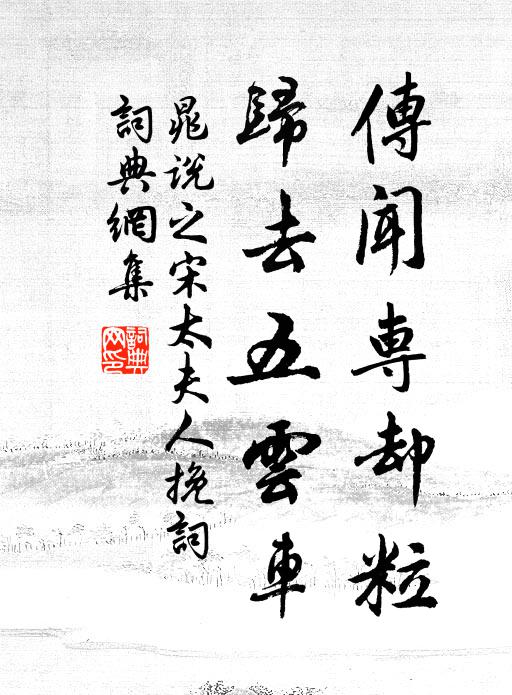 傳聞専却粒
歸去五雲車
晁說之宋太夫人挽詞
詞典網集
詞典网印